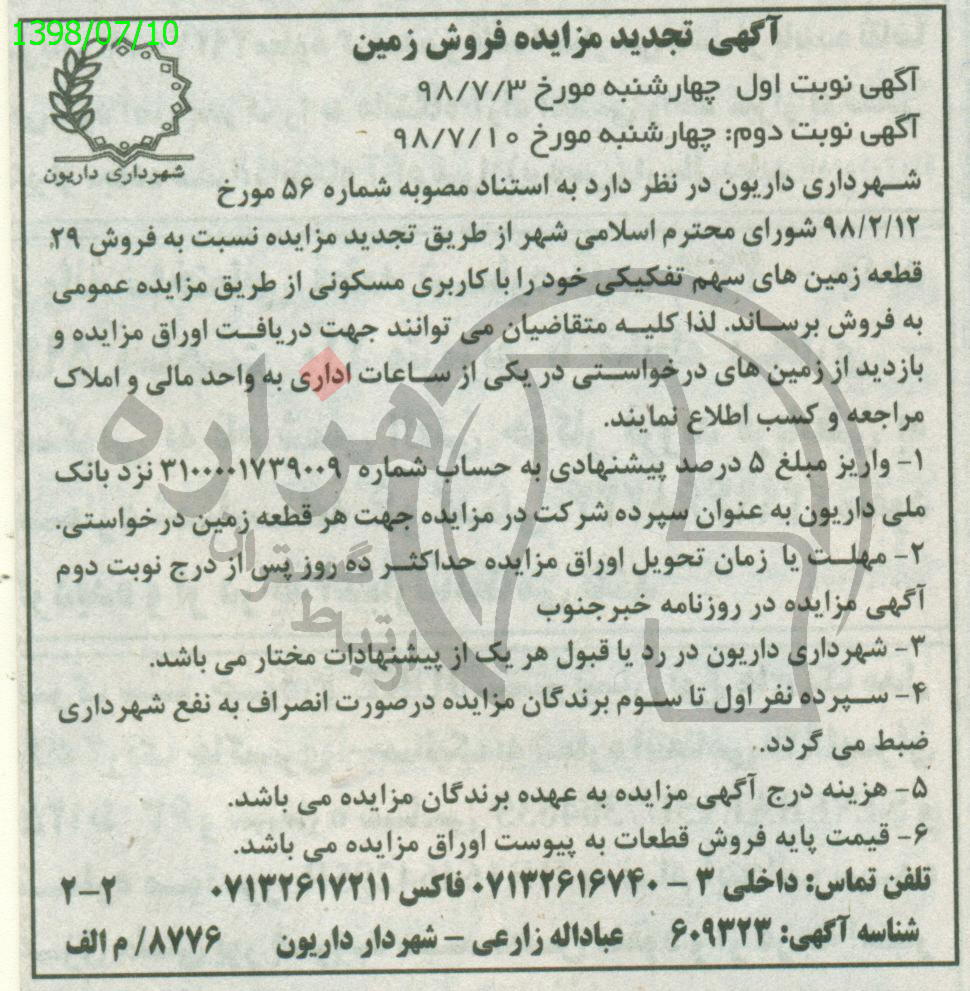 1398/07/10
آگهی تجدید مزایده فروش زمین
آگهی نوبت اول چهارشنبه مورخ ۹۸/۷/۳
آگهی نوبت دوم: چهارشنبه مورخ ۹۸/۷/۱۰
شهرداری داریون
شهرداری داریون در نظر دارد به استناد مصوبه شماره ۵۶ مورخ
۹۸/۲/۱۲ شورای محترم اسلامی شهر از طریق تجدید مزایده نسبت به فروش ۲۹
قطعه زمین های سهم تفکیکی خود را با کاربری مسکونی از طریق مزایده عمومی
به فروش برساند. لذا کلیه متقاضیان می توانند جهت دریافت اوراق مزایده و
بازدید از زمین های درخواستی در یکی از ساعات اداری به واحد مالی و املاک
مراجعه و کسب اطلاع نمایند.
۱- واریز مبلغ ۵ درصد پیشنهادی به حساب شماره ۳۱۰۰۰۰۱۷۳۹۰۰۹ نزد بانک
ملی داریون به عنوان سپرده شرکت در مزایده جهت هر قطعه زمین درخواستی.
۲- مهلت یا زمان تحویل اوراق مزایده حداکثر ده روز پس از درج نوبت دوم
آگهی مزایده در روزنامه خبرجنوب
۳- شهرداری داریون در رد یا قبول هر یک از پیشنهادات مختار می باشد.
۴- سپرده نفر اول تا سوم برندگان مزایده درصورت انصراف به نفع شهرداری
ضبط می گردد.
۵- هزینه درج آگهی مزایده به عهده برندگان مزایده می باشد.
۶- قیمت پایه فروش قطعات به پیوست اوراق مزایده می باشد.
تلفن تماس: داخلی ۳ - ۰۷۱۳۲۶۱۶۷۴۰ فاکس ۰۷۱۳۲۶۱۷۲۱۱ ۲-۲
شناسه آگهی: ۶۰۹۳۲۳ عباداله زارعی - شهردار داریون ۸۷۷۶/ م الف
هزاره
ارتباط گستران